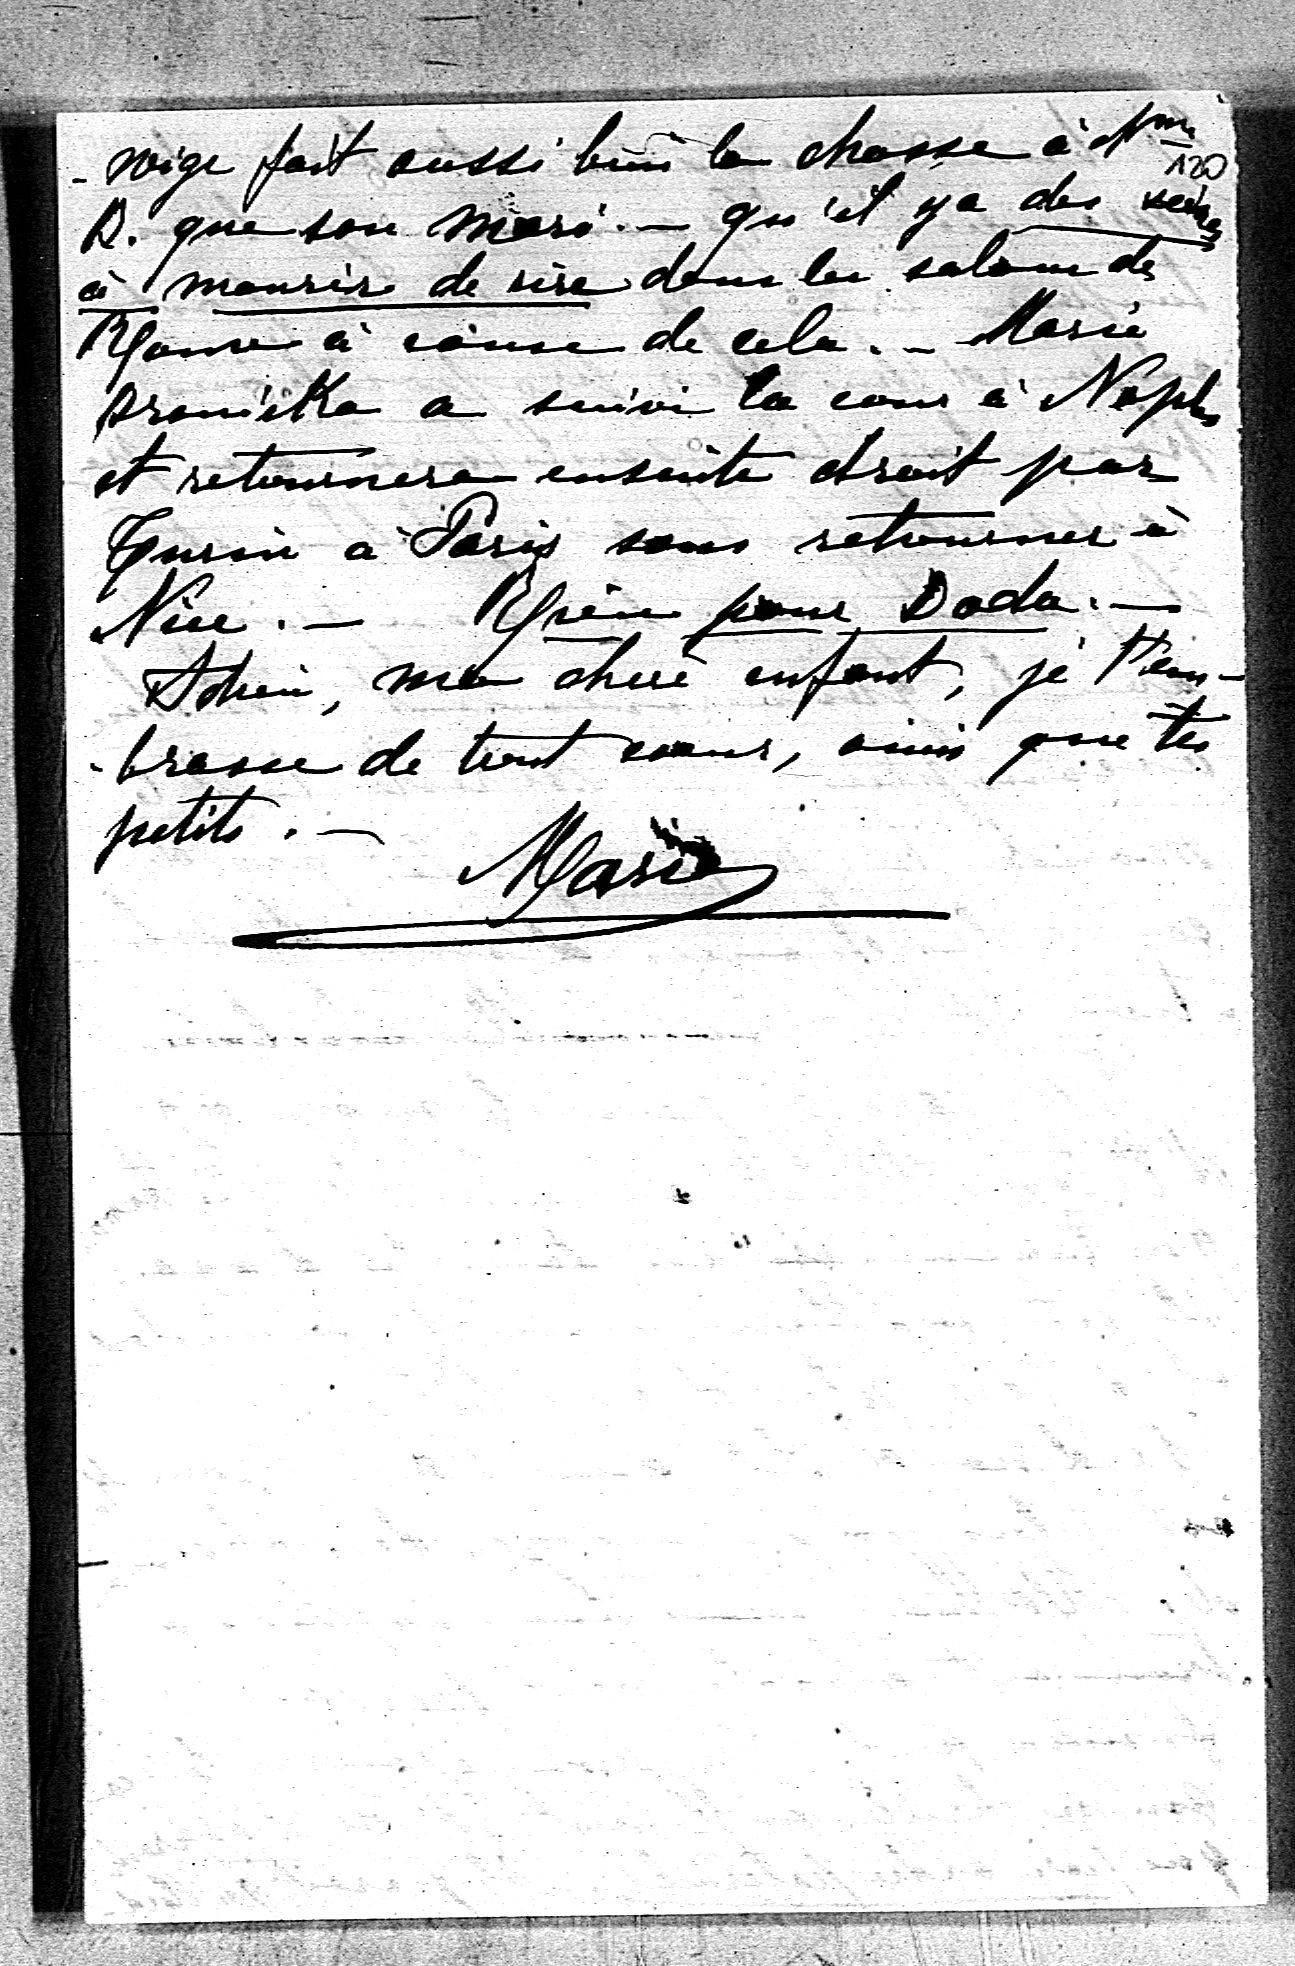 - wige fait aussi bien la chasse à Mme
120
R. que son mari. — qu'il y a des scènes
à mourir de rire dans les salons de
Rome à cause de cela. — Marie
Branicka a suivi la cour à Naples
et retournera ensuite droit par
Turin à Paris sans retourner à
Nice. — Rien pour Doda. —
Adieu, ma chère enfant, je t'em-
-brasse de tout cœur, ainsi que tes
petits. —
Marie